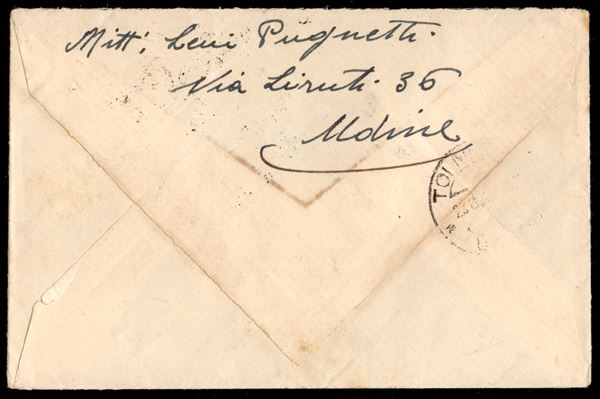 Mitt. Levi Pugnetti
Via Liruti 36
Udine
TOLM